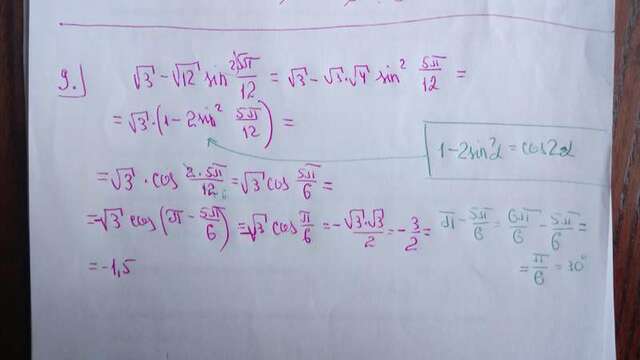 9.) √3 - √12 sin² 5π/12 = √3 - √3·√4 sin² 5π/12 =
= √3·(1 - 2sin² 5π/12) =
1 - 2sin²α = cos2α
= √3 · cos 2·5π/12 = √3 cos 5π/6 =
= -√3 cos(π - 5π/6) = -√3 cos π/6 = - √3·√3/2 = - 3/2 =
= -1,5
π - 5π/6 = 6π/6 - 5π/6 =
= π/6 = 30°